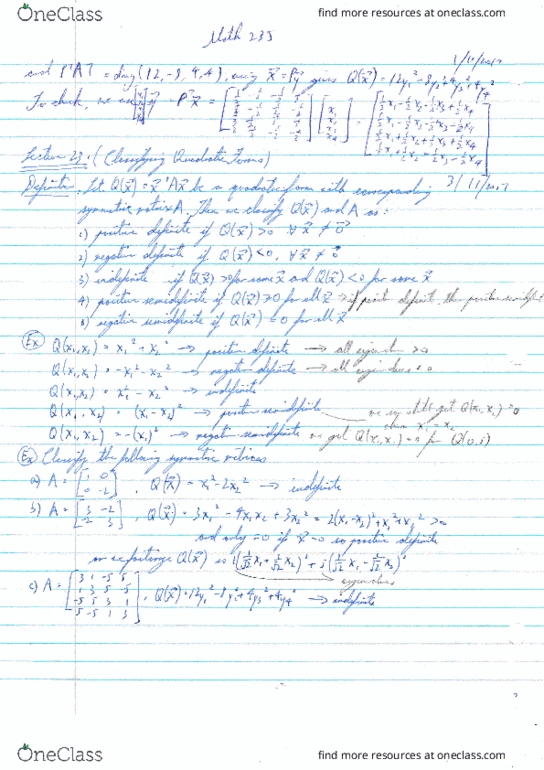 OneClass
find more resources at oneclass.com
Math 235
and PᵀAP = diag(12,-8,4,4), using x⃗ = Py⃗ gives Q(x⃗) = 12y₁² - 8y₂² + 4y₃² + 4y₄²
To check, we use y⃗ = Pᵀx⃗ =
Lecture 23: (Classifying Quadratic Forms)
3/11/2017
Definition: Let Q(x⃗) = x⃗ᵀAx⃗ be a quadratic form with corresponding
symmetric matrix A. Then we classify Q(x⃗) and A as:
1) positive definite if Q(x⃗) > 0 ∀x⃗ ≠ 0⃗
2) negative definite if Q(x⃗) < 0, ∀x⃗ ≠ 0⃗
3) indefinite if Q(x⃗) > 0 for some x⃗ and Q(x⃗) < 0 for some x⃗
4) positive semidefinite if Q(x⃗) ≥ 0 for all x⃗ → if posit definit, then positive semidefinit
5) negative semidefinite if Q(x⃗) ≤ 0 for all x⃗
Ex Q(x₁,x₂) = x₁² + x₂² → positive definite → all eigenvalues > 0
Q(x₁,x₂) = -x₁² - x₂² → negative definite → all eigenvalues < 0
Q(x₁,x₂) = x₁² - x₂² → indefinite
Q(x₁,x₂) = (x₁-x₂)² → positive semidefinite we can still get Q(x₁,x₂) = 0 when x₁ = x₂
Q(x₁,x₂) = -(x₁)² → negative semidefinite we get Q(x₁,x₂) = 0 for Q(0,1)
Ex Classify the following symmetric matrices
a) A = [1 0; 0 -2], Q(x⃗) = x₁² - 2x₂² → indefinite
b) A = [3 -2; -2 3], Q(x⃗) = 3x₁² - 4x₁x₂ + 3x₂² = 2(x₁-x₂)² + x₁² + x₂² ≥ 0
and only = 0 if x⃗ = 0 so positive definite
Q(x⃗) is 1(1/√2 x₁ + 1/√2 x₂)² + 5(1/√2 x₁ - 1/√2 x₂)²
eigenvalues
c) A = [3 1 -5 5; 1 3 5 -5; -5 5 3 1; 5 -5 1 3], Q(x⃗) = 12y₁² - 8y₂² + 4y₃² + 4y₄² → indefinite
OneClass
find more resources at oneclass.com